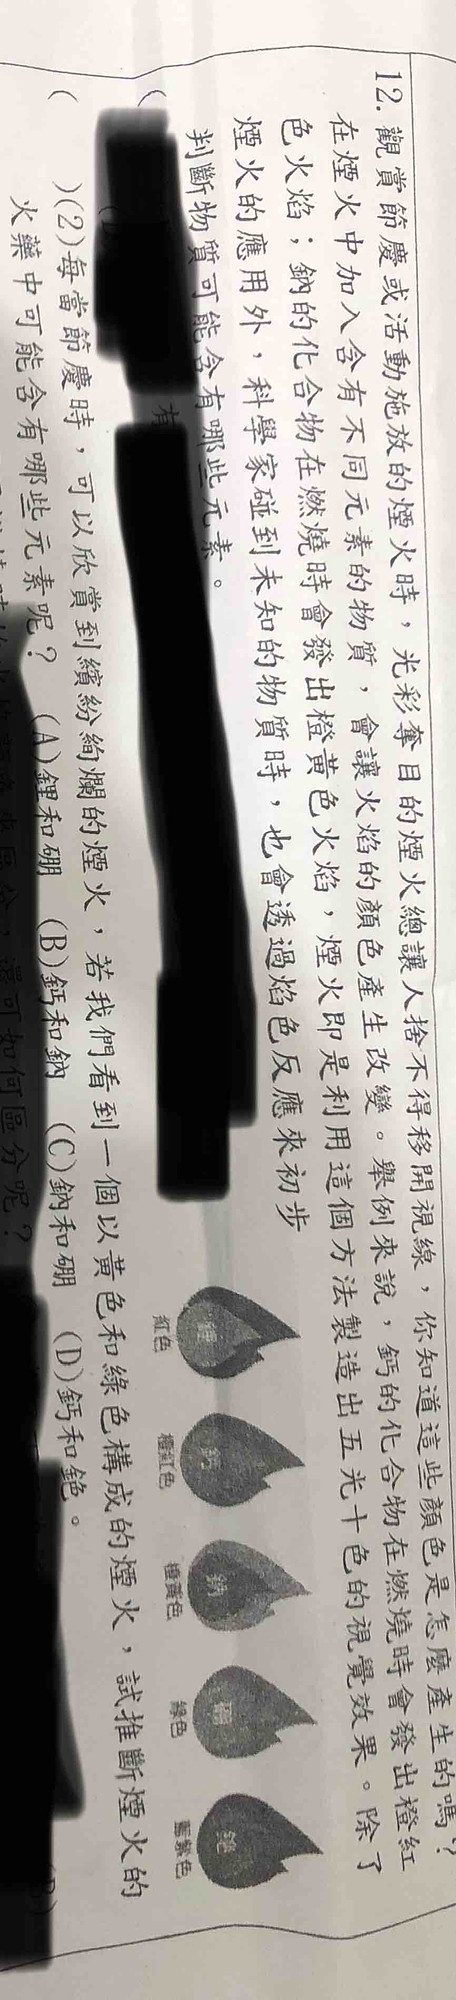 12. 觀賞節慶或活動施放的煙火時，光彩奪目的煙火總讓人捨不得移開視線，你知道這些顏色是怎麼產生的嗎？
在煙火中加入含有不同元素的物質，會讓火焰的顏色產生改變。舉例來說，鈣的化合物在燃燒時會發出橙紅
色火焰；鈉的化合物在燃燒時會發出橙黃色火焰，煙火即是利用這個方法製造出五光十色的視覺效果。除了
煙火的應用外，科學家碰到未知的物質時，也會透過焰色反應來初步
判斷物質可能含有哪些元素。
鋰 鈣 鈉 硼 銫
紅色 橙紅色 橙黃色 綠色 藍紫色
(
有
( )(2)每當節慶時，可以欣賞到繽紛絢爛的煙火，若我們看到一個以黃色和綠色構成的煙火，試推斷煙火的
火藥中可能含有哪些元素呢？ (A)鋰和硼 (B)鈣和鈉 (C)鈉和硼 (D)鈣和銫。
來區分，還可如何區分呢？